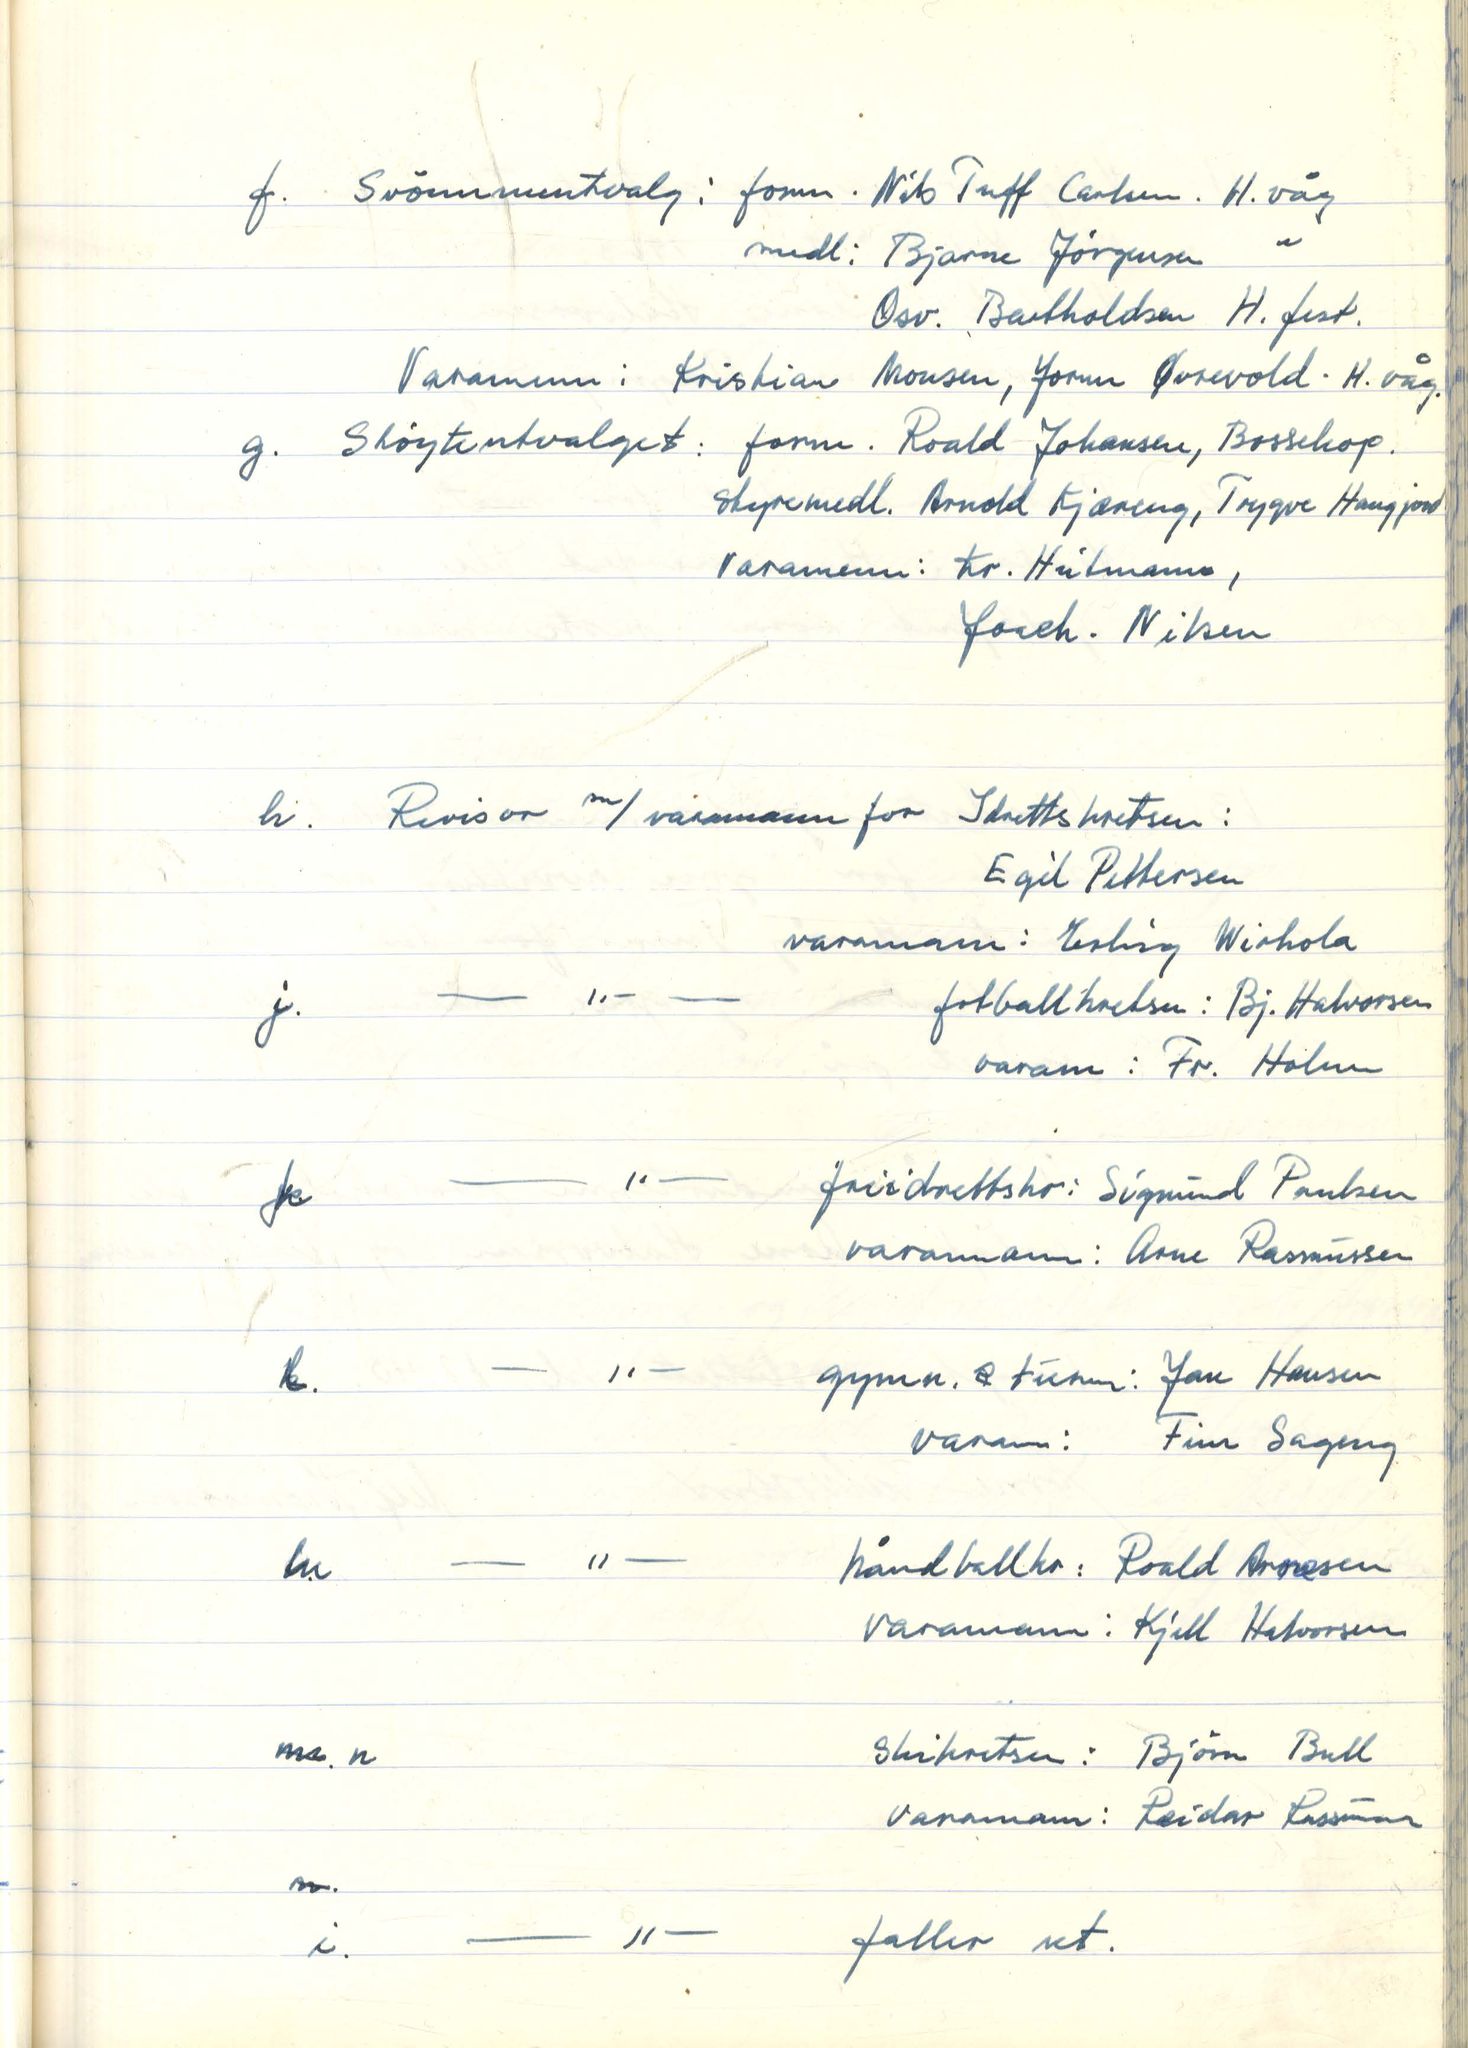 f. Svömmeutvalg: form. Nils Tuff Carlsen. H. våg
medl: Bjarne Jörgensen "
Osv. Bertholdsen H. fest.
Varamenn: Kristian Monsen, Jorun Øvrevold. H. våg.
g. Skøyteutvalget: form. Roald Johansen, Bossekop.
Styremedl. Arnold Kjæreng, Trygve Haugjord
Varamenn: Kr. Heitmann,
Joach. Nilsen
h. Revisor m/ varamann for Idrettskretsen:
Egil Pettersen
varamann: Erling Wirkola
j. — " — fotballkretsen: Bj. Halvorsen
varam: Fr. Holm
k — " — friidrettskr: Sigmund Paulsen
varamann: Arne Rasmussen
l. — " — gymn. & turn: Jan Hansen
varam: Finn Sageng
m — " — håndballkr: Roald Arnesen
Varamann: Kjell Halvorsen
n Skikretsen: Björn Bull
Varamann: Reidar Rassmussen
n.
i. — " — faller ut.